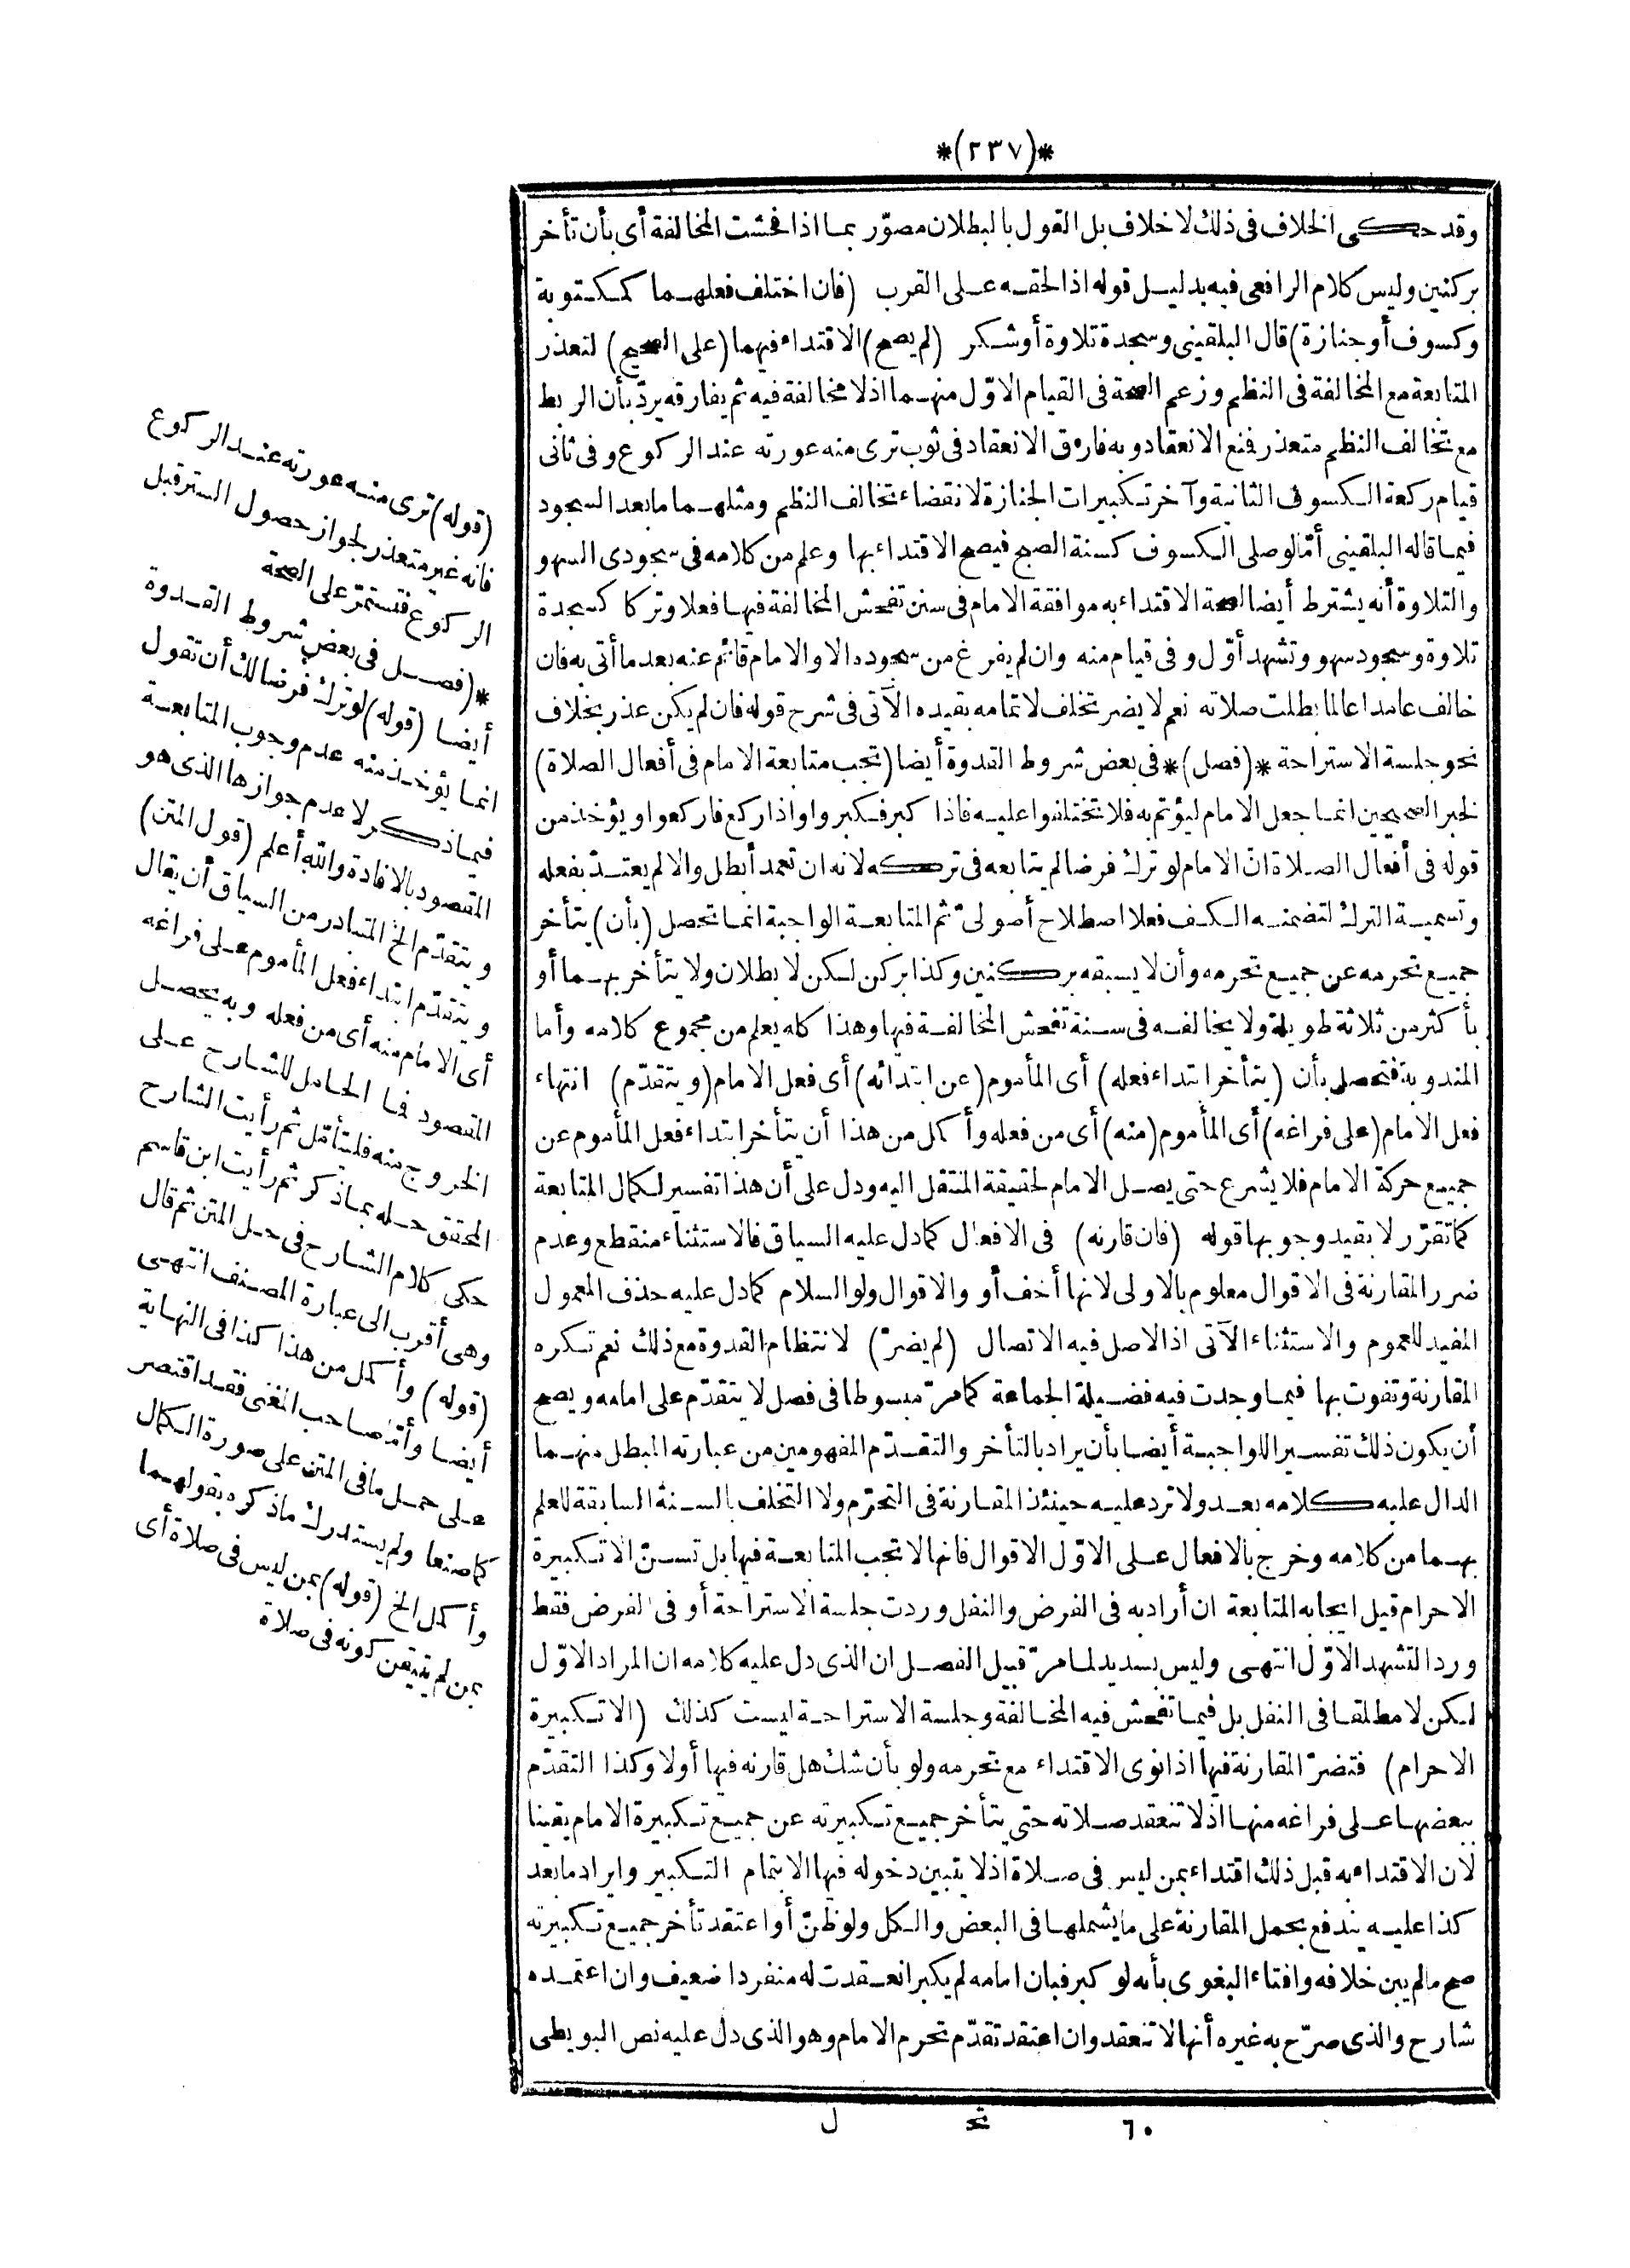 *(٢٣٧)*
وقد حكى الخلاف فى ذلك لا خلاف بل القول بالبطلان مصوّر بما اذا فحشت المخالفة أى بأن تأخر
بركنين وليس كلام الرافعى فيه بدليل قوله اذا لحقه على القرب (فان اختلف فعلهما كمكتوبة
وكسوف أو جنازة) قال البلقينى وسجدة تلاوة أو شكر (لم يصح) الاقتداء فيهما (على الصحيح) لتعذر
المتابعة مع المخالفة فى النظم وزعم الصحة فى القيام الاوّل منهما اذ لا مخالفة فيه ثم يفارقه يردّ بأن الربط
مع تخالف النظم متعذر فمنع الانعقاد وبه فارق الانعقاد فى ثوب ترى منه عورته عند الركوع وفى ثانى
قيام ركعة الكسوف الثانية وآخر تكبيرات الجنازة لانقضاء تخالف النظم ومثلهما ما بعد السجود
فيما قاله البلقينى أمّا لو صلى الكسوف كسنة الصبح فيصح الاقتداء بها وعلم من كلامه فى سجودى السهو
والتلاوة أنه يشترط أيضا لصحة الاقتداء به موافقة الامام فى سنن تفحش المخالفة فيها فعلا وتركا كسجدة
تلاوة وسجود سهو وتشهد أوّل وفى قيام منه وان لم يفرغ من سجوده الا والامام قائم عنه بعد ما أتى به فان
خالف عامدا عالما بطلت صلاته نعم لا يضر تخلف لاتمامه بقيده الآتى فى شرح قوله فان لم يكن عذر بخلاف
نحو جلسة الاستراحة *(فصل)* فى بعض شروط القدوة أيضا (تجب متابعة الامام فى أفعال الصلاة)
لخبر الصحيحين انما جعل الامام ليؤتم به فلا تختلفوا عليه فاذا كبر فكبروا واذا ركع فاركعوا ويؤخذ من
قوله فى أفعال الصلاة انّ الامام لو ترك فرضا لم يتابعه فى تركه لانه ان تعمد أبطل والا لم يعتدّ بفعله
وتسمية الترك لتضمنه الكف فعلا اصطلاح أصولىّ ثم المتابعة الواجبة انما تحصل (بأن) يتأخر
جميع تحرمه عن جميع تحرمه وأن لا يسبقه بركنين وكذا بركن لكن لا بطلان ولا يتأخر بهما أو
بأكثر من ثلاثة طويلة ولا يخالفه فى سنة تفحش المخالفة فيها وهذا كله يعلم من مجموع كلامه وأما
المندوبة فتحصل بأن (يتأخر ابتداء فعله) أى المأموم (عن ابتدائه) أى فعل الامام (ويتقدّم) انتهاء
فعل الامام (على فراغه) أى المأموم (منه) أى من فعله وأكمل من هذا أن يتأخر ابتداء فعل المأموم عن
جميع حركة الامام فلا يشرع حتى يصل الامام لحقيقة المنتقل اليه ودل على أن هذا تفسير لكمال المتابعة
كما تقرّر لا بقيد وجوبها قوله (فان قارنه) فى الافعال كما دل عليه السياق فالاستثناء منقطع وعدم
ضرر المقارنة فى الاقوال معلوم بالاولى لانها أخف أو والاقوال ولو السلام كما دل عليه حذف المعمول
المفيد للعموم والاستثناء الآتى اذ الاصل فيه الاتصال (لم يضرّ) لانتظام القدوة مع ذلك نعم تكره
المقارنة وتفوت بها فيما وجدت فيه فضيلة الجماعة كما مرّ مبسوطا فى فصل لا يتقدّم على امامه ويصح
أن يكون ذلك تفسيرا للواجبة أيضا بأن يراد بالتأخر والتقدّم المفهومين من عبارته المبطل منهما
الدال عليه كلامه بعد ولا ترد عليه حينئذ المقارنة فى التحرّم ولا التخلف بالسنة السابقة للعلم
بهما من كلامه وخرج بالافعال على الاوّل الاقوال فانها لا تجب المتابعة فيها بل تسنّ الا تكبيرة
الاحرام قيل ايجابه المتابعة ان أراد به فى الفرض والنفل وردت جلسة الاستراحة أو فى الفرض فقط
ورد التشهد الاوّل انتهى وليس بسديد لما مرّ قبيل الفصل ان الذى دل عليه كلامه ان المراد الاوّل
لكن لا مطلقا فى النفل بل فيما تفحش فيه المخالفة وجلسة الاستراحة ليست كذلك (الا تكبيرة
الاحرام) فتضرّ المقارنة فيها اذا نوى الاقتداء مع تحرمه ولو بأن شك هل قارنه فيها أو لا وكذا التقدّم
ببعضها على فراغه منها اذ لا تنعقد صلاته حتى يتأخر جميع تكبيرته عن جميع تكبيرة الامام يقينا
لان الاقتداء به قبل ذلك اقتداء بمن ليس فى صلاة اذ لا يتبين دخوله فيها الا بتمام التكبير وايراد ما بعد
كذا عليه يندفع بحمل المقارنة على ما يشملها فى البعض والكل ولو ظنّ أو اعتقد تأخر جميع تكبيرته
صح ما لم يبن خلافه وافتاء البغوى بأنه لو كبر فبان امامه لم يكبر انعقدت له منفردا ضعيف وان اعتمده
شارح والذى صرّح به غيره أنها لا تنعقد وان اعتقد تقدّم تحرم الامام وهو الذى دل عليه نص البويطى
٦٠ تح ل
(قوله) ترى منه عورته عند الركوع
فانه غير متعذر لجواز حصول الستر قبل
الركوع فتستمرّ على الصحة
*(فصل فى بعض شروط القدوة
أيضا (قوله) لو ترك فرضا لك أن تقول
انما يؤخذ منه عدم وجوب المتابعة
فيما ذكر لا عدم جوازها الذى هو
المقصود بالافادة والله أعلم (قول المتن)
ويتقدّم الخ المتبادر من السياق أن يقال
ويتقدّم ابتداء فعل المأموم على فراغه
أى الامام منه أى من فعله وبه يحصل
المقصود فما الحامل للشارح على
الخروج منه فليتأمّل ثم رأيت الشارح
المحقق حله بما ذكر ثم رأيت ابن قاسم
حكى كلام الشارح فى حل المتن ثم قال
وهى أقرب الى عبارة المصنف انتهى
(قوله) وأكمل من هذا كذا فى النهاية
أيضا وأمّا صاحب المغنى فقد اقتصر
على حمل ما فى المتن على صورة الكمال
كما صنعا ولم يستدرك ما ذكره بقولهما
وأكمل الخ (قوله) بمن ليس فى صلاة أى
بمن لم يتيقن كونه فى صلاة